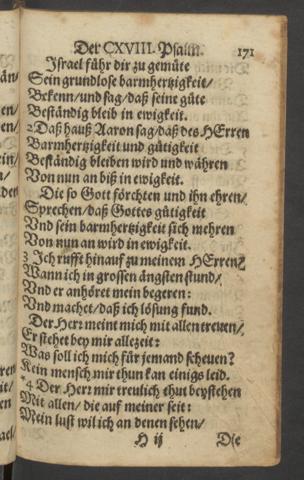 Der CXVIII. Psalm. 171
Israel führ dir zu gemüte
Sein grundlose barmhertzigkeit/
Bekenn/und sag/daß seine güte
Beständig bleib in ewigkeit.
2 Daß hauß Aaron sag/daß des HErren
Barmhertzigkeit und gütigkeit
Beständig bleiben wird und währen
Von nun an biß in ewigkeit.
Die so Gott förchten und ihn ehren/
Sprechen/daß Gottes gütigkeit
Vnd sein barmhertzigkeit sich mehren
Von nun an wird in ewigkeit.
3 Ich rufft hinauf zu meinem HErren/
Wann ich in grossen ängsten stund/
Vnd er anhöret mein begeren:
Vnd machet/daß ich lösung fund.
Der Herr meint mich mit allen treuen/
Er stehet bey mir allezeit:
Was soll ich mich für jemand scheuen?
Kein mensch mir thun kan einigs leid.
*4 Der Herr mir treulich thut beystehen
Mit allen/die auf meiner seit:
Mein lust wil ich an denen sehen/
H ij Die